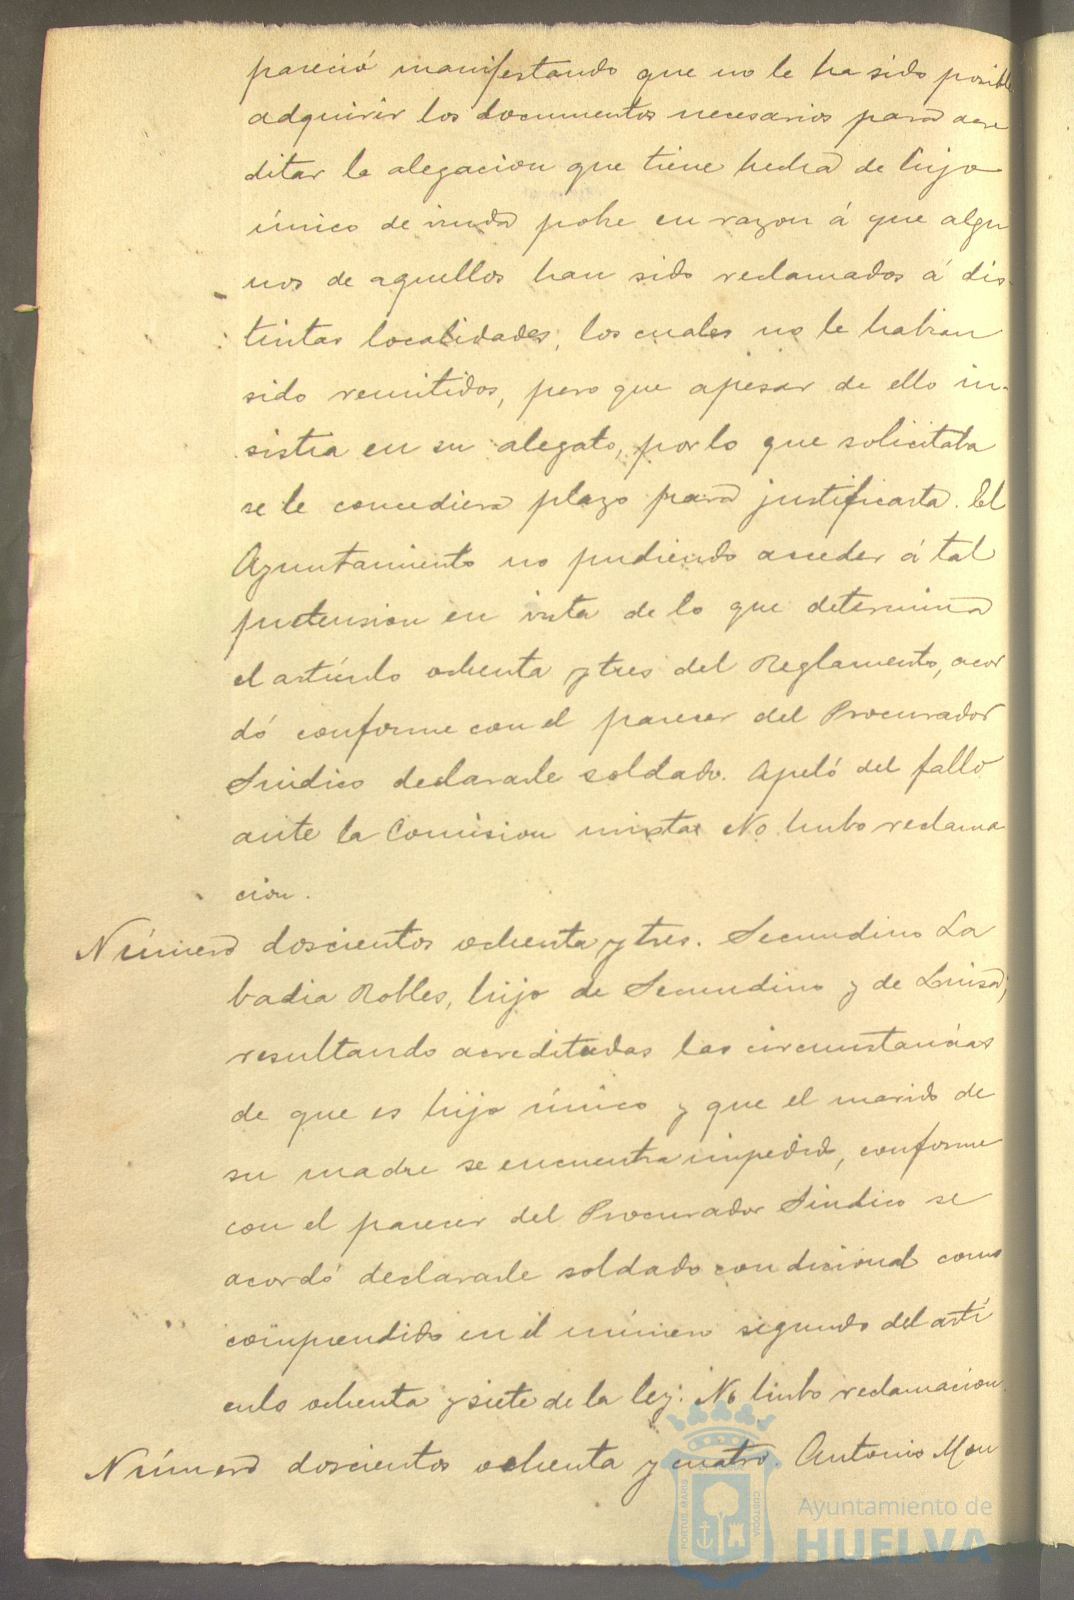 pareció manifestando que no le ha sido posible
adquirir los documentos necesarios para acre
ditar la alegacion que tiene hecha de hijo
único de viuda pobre en razon á que algu
nos de aquellos han sido reclamados á dis-
tintas localidades, los cuales no le habian
sido remitidos, pero que apesar de ello in-
sistia en su alegato, por lo que solicitaba
se le concediera plazo para justificarla. El
Ayuntamiento no pudiendo acceder á tal
pretension en vista de lo que determina
el artículo ochenta y tres del Reglamento, acor
dó conforme con el parecer del Procurador
Sindico declararle soldado. Apeló del fallo
ante la Comision mixta. No hubo reclama
cion.
Número doscientos ochenta y tres. Secundino La
badia Robles, hijo de Secundino y de Luisa;
resultando acreditadas las circunstancias
de que es hijo único y que el marido de
su madre se encuentra impedido, conforme
con el parecer del Procurador Sindico se
acordó declararle soldado condicional como
comprendido en el número segundo del artí
culo ochenta y siete de la ley. No hubo reclamacion.
Número doscientos ochenta y cuatro. Antonio Mon
PORTUS MARIS
CUSTODIA
Ayuntamiento de
HUELVA